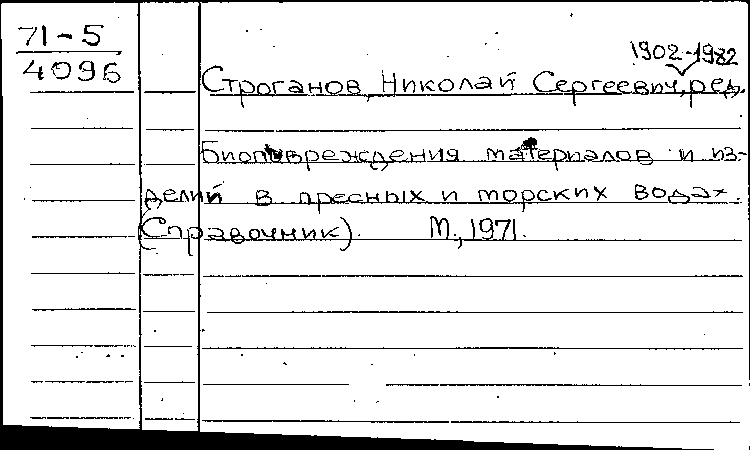 71-5
4096
1902-1982
Строганов, Николай Сергеевич, ред.
Биоповреждения материалов и из-
делий в пресных и морских водах.
(Справочник). М., 1971.